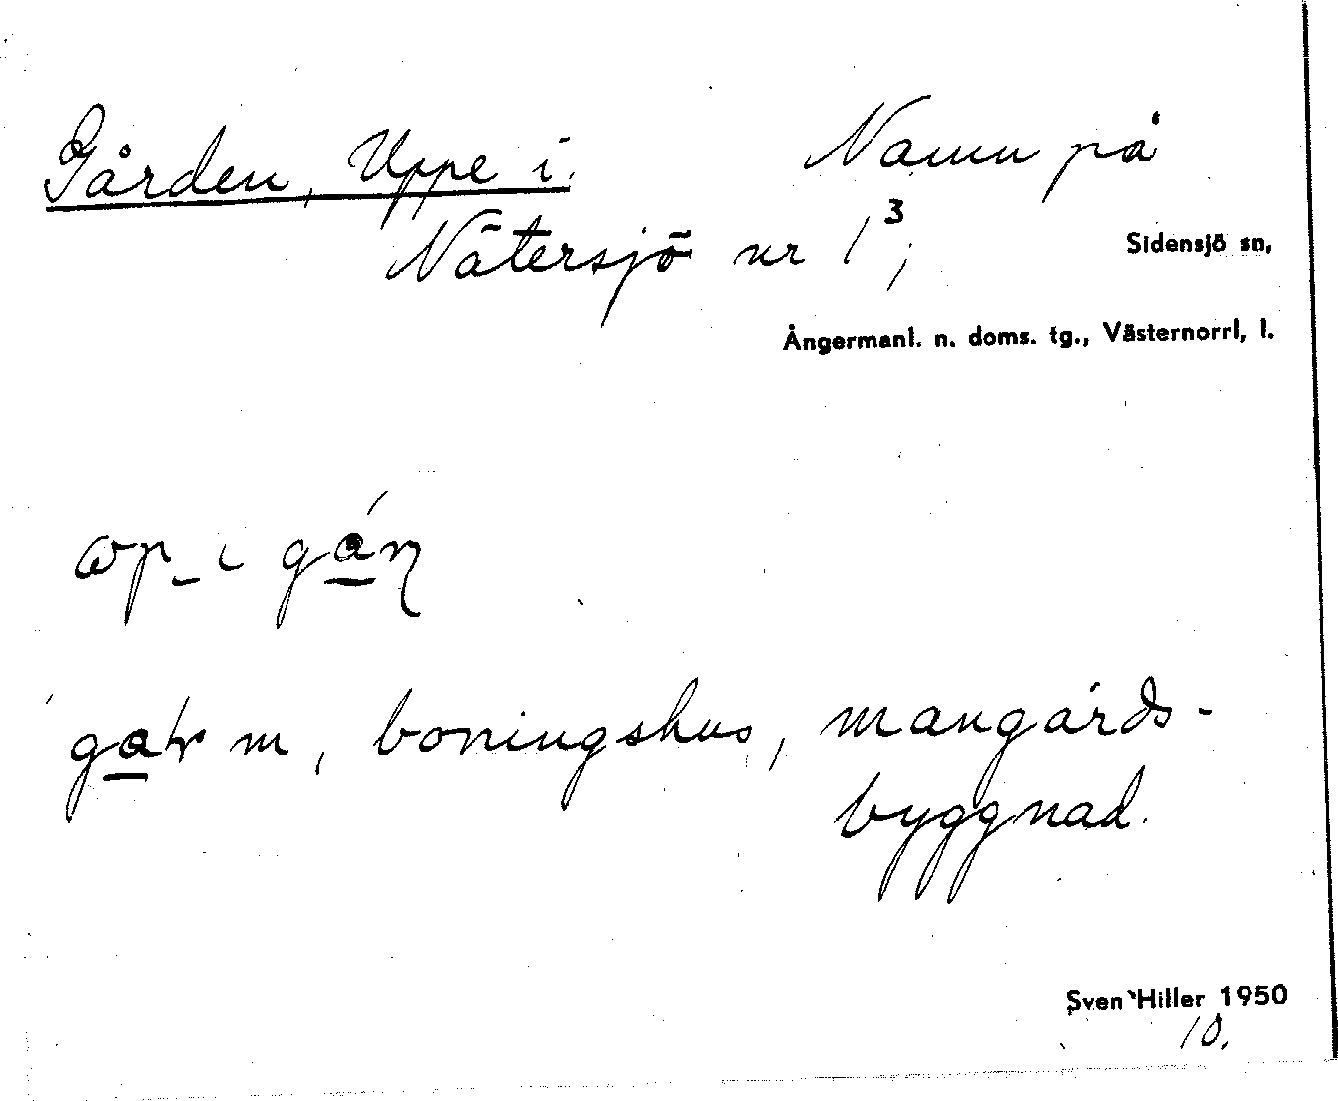 Gården, Uppe i. Namn på
Nätersjö nr 1³;
Sidensjö sn,
Ångermanl. n. doms. tg., Västernorrl, l.
m, boningshus, mangårds-
byggnad.
Sven Hiller 1950
10.